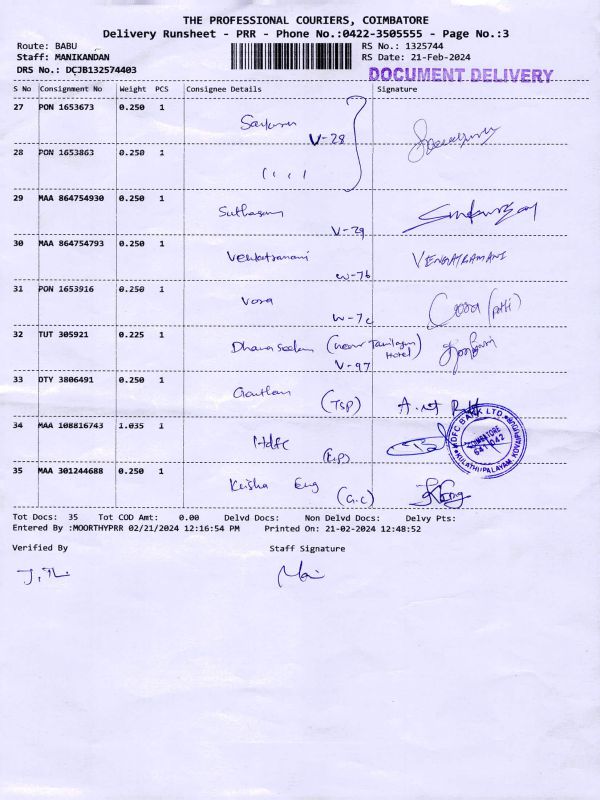 THE PROFESSIONAL COURIERS, COIMBATORE
Delivery Runsheet - PRR - Phone No.:0422-3505555 - Page No.:3
Route: BABU RS No.: 1325744
Staff: MANIKANDAN RS Date: 21-Feb-2024
DRS No.: DCJB132574403 DOCUMENT DELIVERY
S No Consignment No Weight PCS Consignee Details Signature
27 PON 1653673 0.250 1
V-28
28 PON 1653863 0.250 1
29 MAA 864754930 0.250 1
V-29
30 MAA 864754793 0.250 1 Venkatramani VENKATRAMANI
W-7b
31 PON 1653916 0.250 1 Vora
W-7c
32 TUT 305921 0.225 1 (near Tamilagam Hotel)
V-97
33 OTY 3806491 0.250 1 Goutham (TSP)
34 MAA 108816743 1.035 1 Hdfc (E.P) HDFC BANK LTD. COIMBATORE 641 042 KULATHUPALAYAM, KOVAIPUDUR
35 MAA 301244688 0.250 1 Keisha Eng (G.C)
Tot Docs: 35 Tot COD Amt: 0.00 Delvd Docs: Non Delvd Docs: Delvy Pts:
Entered By :MOORTHYPRR 02/21/2024 12:16:54 PM Printed On: 21-02-2024 12:48:52
Verified By Staff Signature
Mani